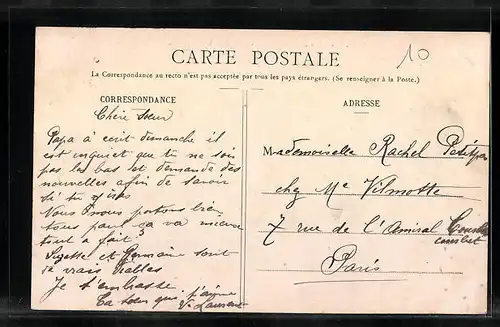 10
CARTE POSTALE
La Correspondance au recto n'est pas acceptée par tous les pays étrangers. (Se renseigner à la Poste.)
CORRESPONDANCE
ADRESSE
Chère Sœur
Papa à écrit dimanche il
est inquiet que tu ne sois
pas là bas et demande des
nouvelles afin de savoir
si tu y
Nous nous portons bien
tous ça va mieux
tout à fait
et Germaine sont
de vrais
Je t'embrasse
Ta sœur qui t'aime
Laurent
Mademoiselle Rachel
chez Me Vilmotte
7 rue de l'Amiral
Courbet
Paris